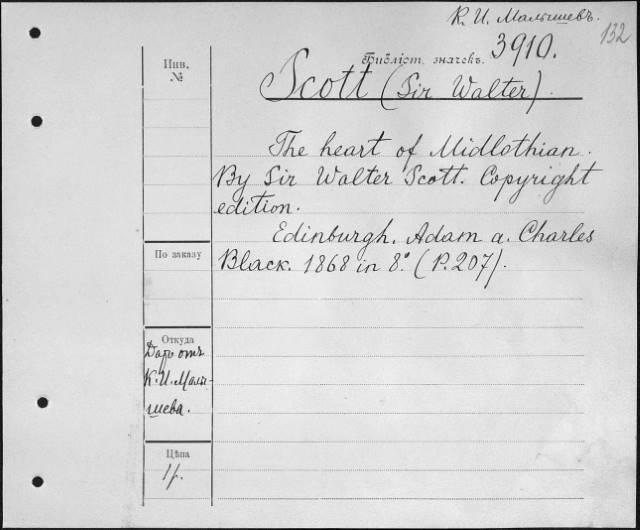 К. И. Малышевъ.
132
Инв.
№
Библіот. значекъ. 3910.
Scott (Sir Walter).
The heart of Midlothian.
By Sir Walter Scott. Copyright
edition.
Edinburgh. Adam a. Charles
Black. 1868 in 8°. (P. 207).
По заказу
Откуда
Даръ отъ
К. И. Малы-
шева.
Цѣна
1 р.